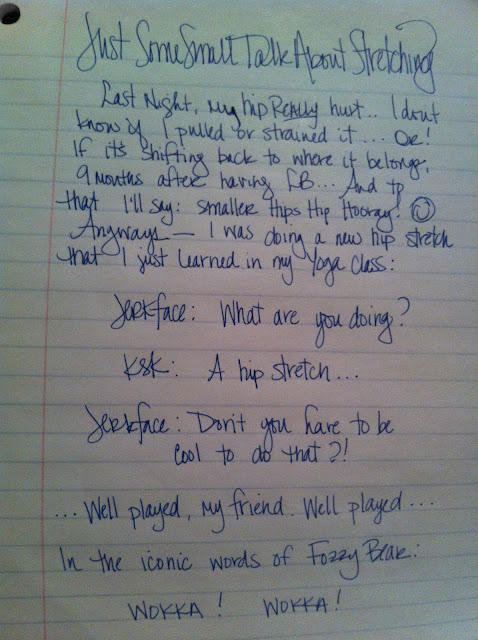 Just Some Small Talk About Stretching
Last Night, my hip REALLY hurt.. I don't
know if I pulled or strained it.... OR!
If it's shifting back to where it belongs,
9 months after having LB... And to
that I'll say: smaller hips Hip Hooray! ☺
Anyways — I was doing a new hip stretch
that I just learned in my Yoga class:
Jerkface: What are you doing?
KSK: A hip stretch...
Jerkface: Don't you have to be
cool to do that?!
... Well played, my friend. Well played...
In the iconic words of Fozzy Bear:
WOKKA! WOKKA!